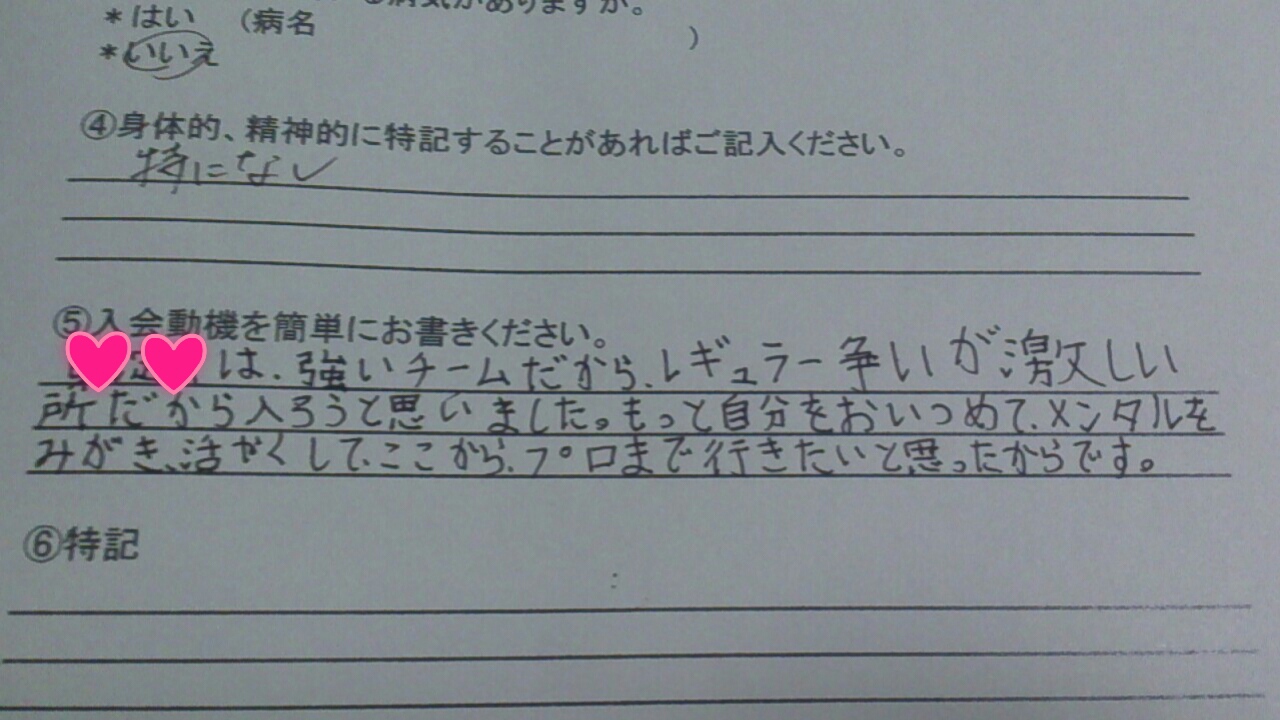 病気がありますか。
*はい (病名 )
*いいえ
④身体的、精神的に特記することがあればご記入ください。
特になし
⑤入会動機を簡単にお書きください。
は、強いチームだから、レギュラー争いが激しい
所だから入ろうと思いました。もっと自分をおいつめて、メンタルを
みがき、活やくして、ここから、プロまで行きたいと思ったからです。
⑥特記